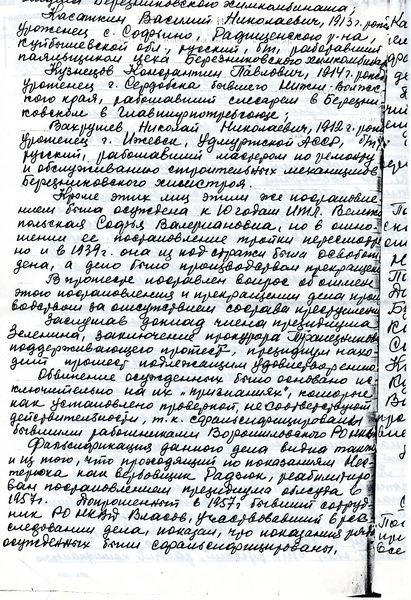 Березниковского химкомбината;
Касаткин Василий Николаевич, 1913 г. рожд.
уроженец с. Софьино, Радищенского р-на,
Куйбышевской обл., русский, б/п, работавший
паяльщиком цеха Березниковского химкомбината
Кузнецов Константин Павлович, 1914 г. рожд.
уроженец г. Сердобска бывшего Нижне-Волжс-
кого края, работавший слесарем в Березни-
ковском в Главширпотребсоюзе;
Вахрушев Николай Николаевич, 1912 г. рожд.
уроженец г. Ижевск, Удмуртской АССР, б/п
русский, работавший мастером по ремонту
и обслуживанию строительных механизмов
Березниковского химстроя.
Кроме этих лиц этим же постановле-
нием была осуждена к 10 годам ИТЛ. Велико
польская Софья Валериановна, но в отно-
шении ее постановление тройки пересмотре
но и в 1939 г. она из под стражи была освобож
дена, а дело было производством прекращен
В протесте поставлен вопрос об отмене
этого постановления и прекращении дела прои
водством за отсутствием состава преступления
Заслушав доклад члена президиума
Зеленина, заключение прокурора
поддерживающего протест, президиум нахо-
дит протест подлежащим удовлетворению.
Обвинение осужденных было основано ис
ключительно на их "признаниях", которые
как установлено проверкой, не соответствуют
действительности, т.к. сфальсифицированы
бывшими работниками Ворошиловского РО НКВД
Фальсификация данного дела видна также
и из того, что проходящий по показаниям Нес-
терюка как вербовщик Радолок, реабилитиро
ван постановлением президиума облсуда в
1957 г. Допрошенный в 1957 г. бывший сотруд
ник РО НКВД Власов, участвовавший в рас
следовании дела, показал, что показания ряда
осужденных были сфальсифицированы.